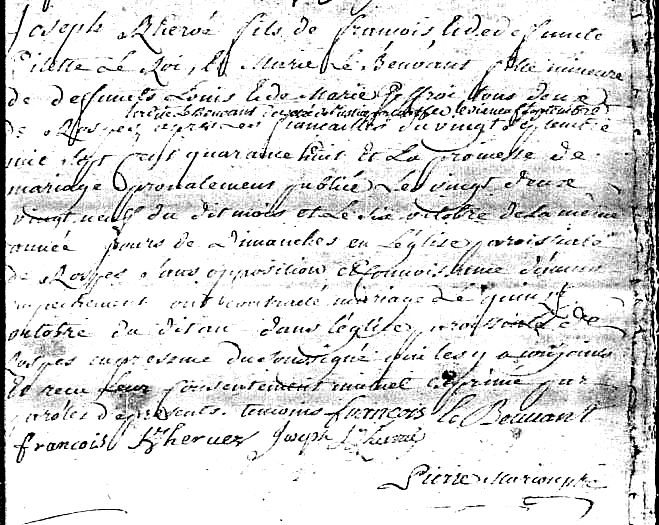 Joseph Khervé fils de francois et de defuncte
Le Roi, et Marie Le Beuvant fille mineure
de defuncts Louis et de Marie tous deux
de Rospez apres les fiancailles du vingt septembre
mil sept cent quarante huit et la promesse de
mariage pronalement publiée les vingt deux
vingt neuf du dit mois et le six octobre de la même
année jours de Dimanches en L'église paroissiale
de Rospez sans opposition et connoissance d'aucun
empechement ont contracté mariage Le quinze
octobre du dit an dans l'église paroissiale de
Rospez en presence du soussigné qui les y a conjoints
Et recu leur consentement mutuel exprimé par
paroles de presents. temoins francois le Beuvant
francois Khervez Joseph Khervé
Pierre Marion